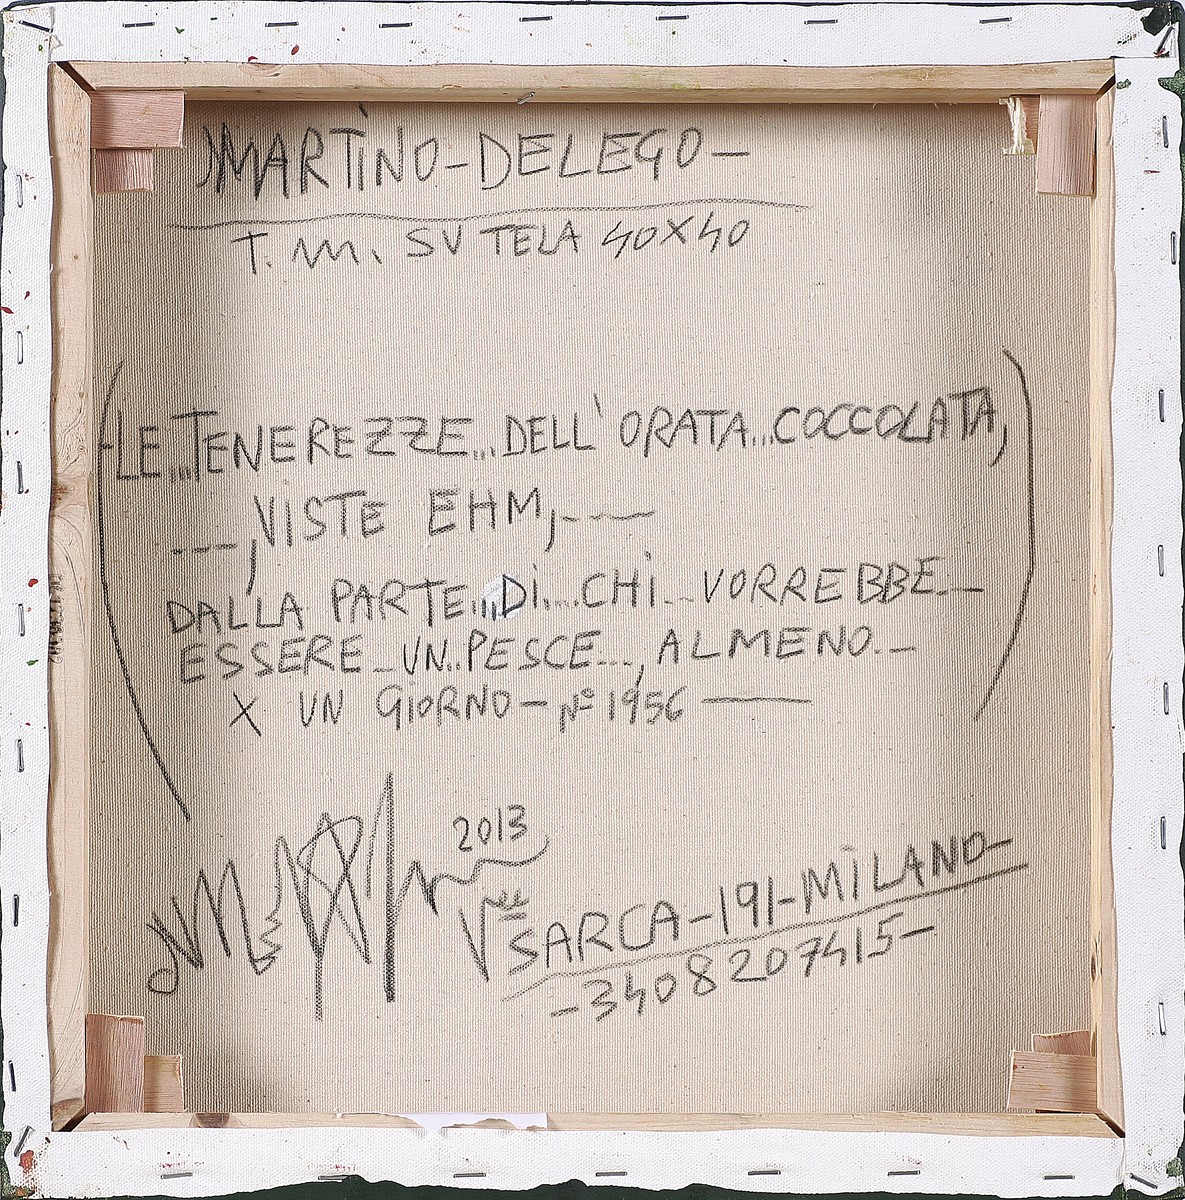 MARTiNO-DELEGO-
T. M. SU TELA 40X40
(LE...TENEREZZE...DELL'ORATA...COCCOLATA,
---,ViSTE EHM,----
DALLA PARTE...Di...CHi...VORREBBE...
ESSERE...UN..PESCE...,ALMENO..-
X UN GiORNO-N° 1956-)
2013
V.le SARCA-191-MiLANO-
-3408207415-